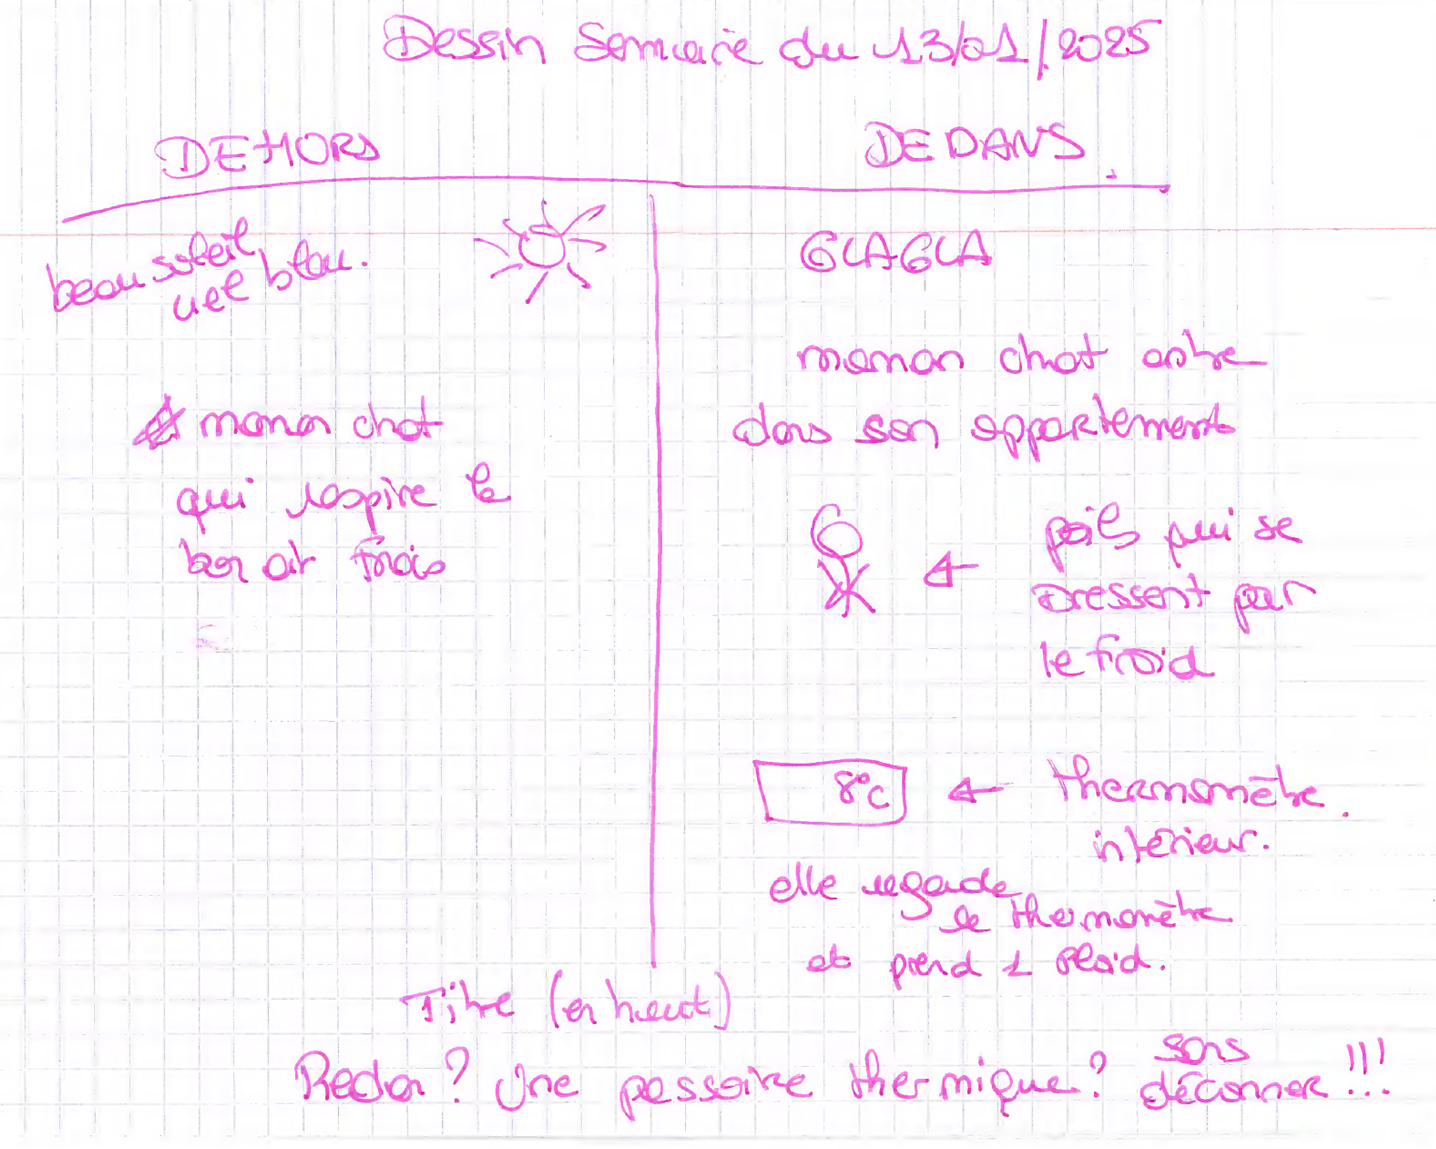 Dessin Semaine du 13/01/2025
DEHORS
beau soleil
ciel bleu.
maman chat
qui respire le
bon air frais
DEDANS
GLAGLA
maman chat entre
dans son appartement
poils qui se
dressent par
le froid
8°C
thermomètre
intérieur.
elle regarde
le thermomètre
et prend 1 plaid.
Titre (en haut)
Redon? Une passoire thermique? sans déconner!!!